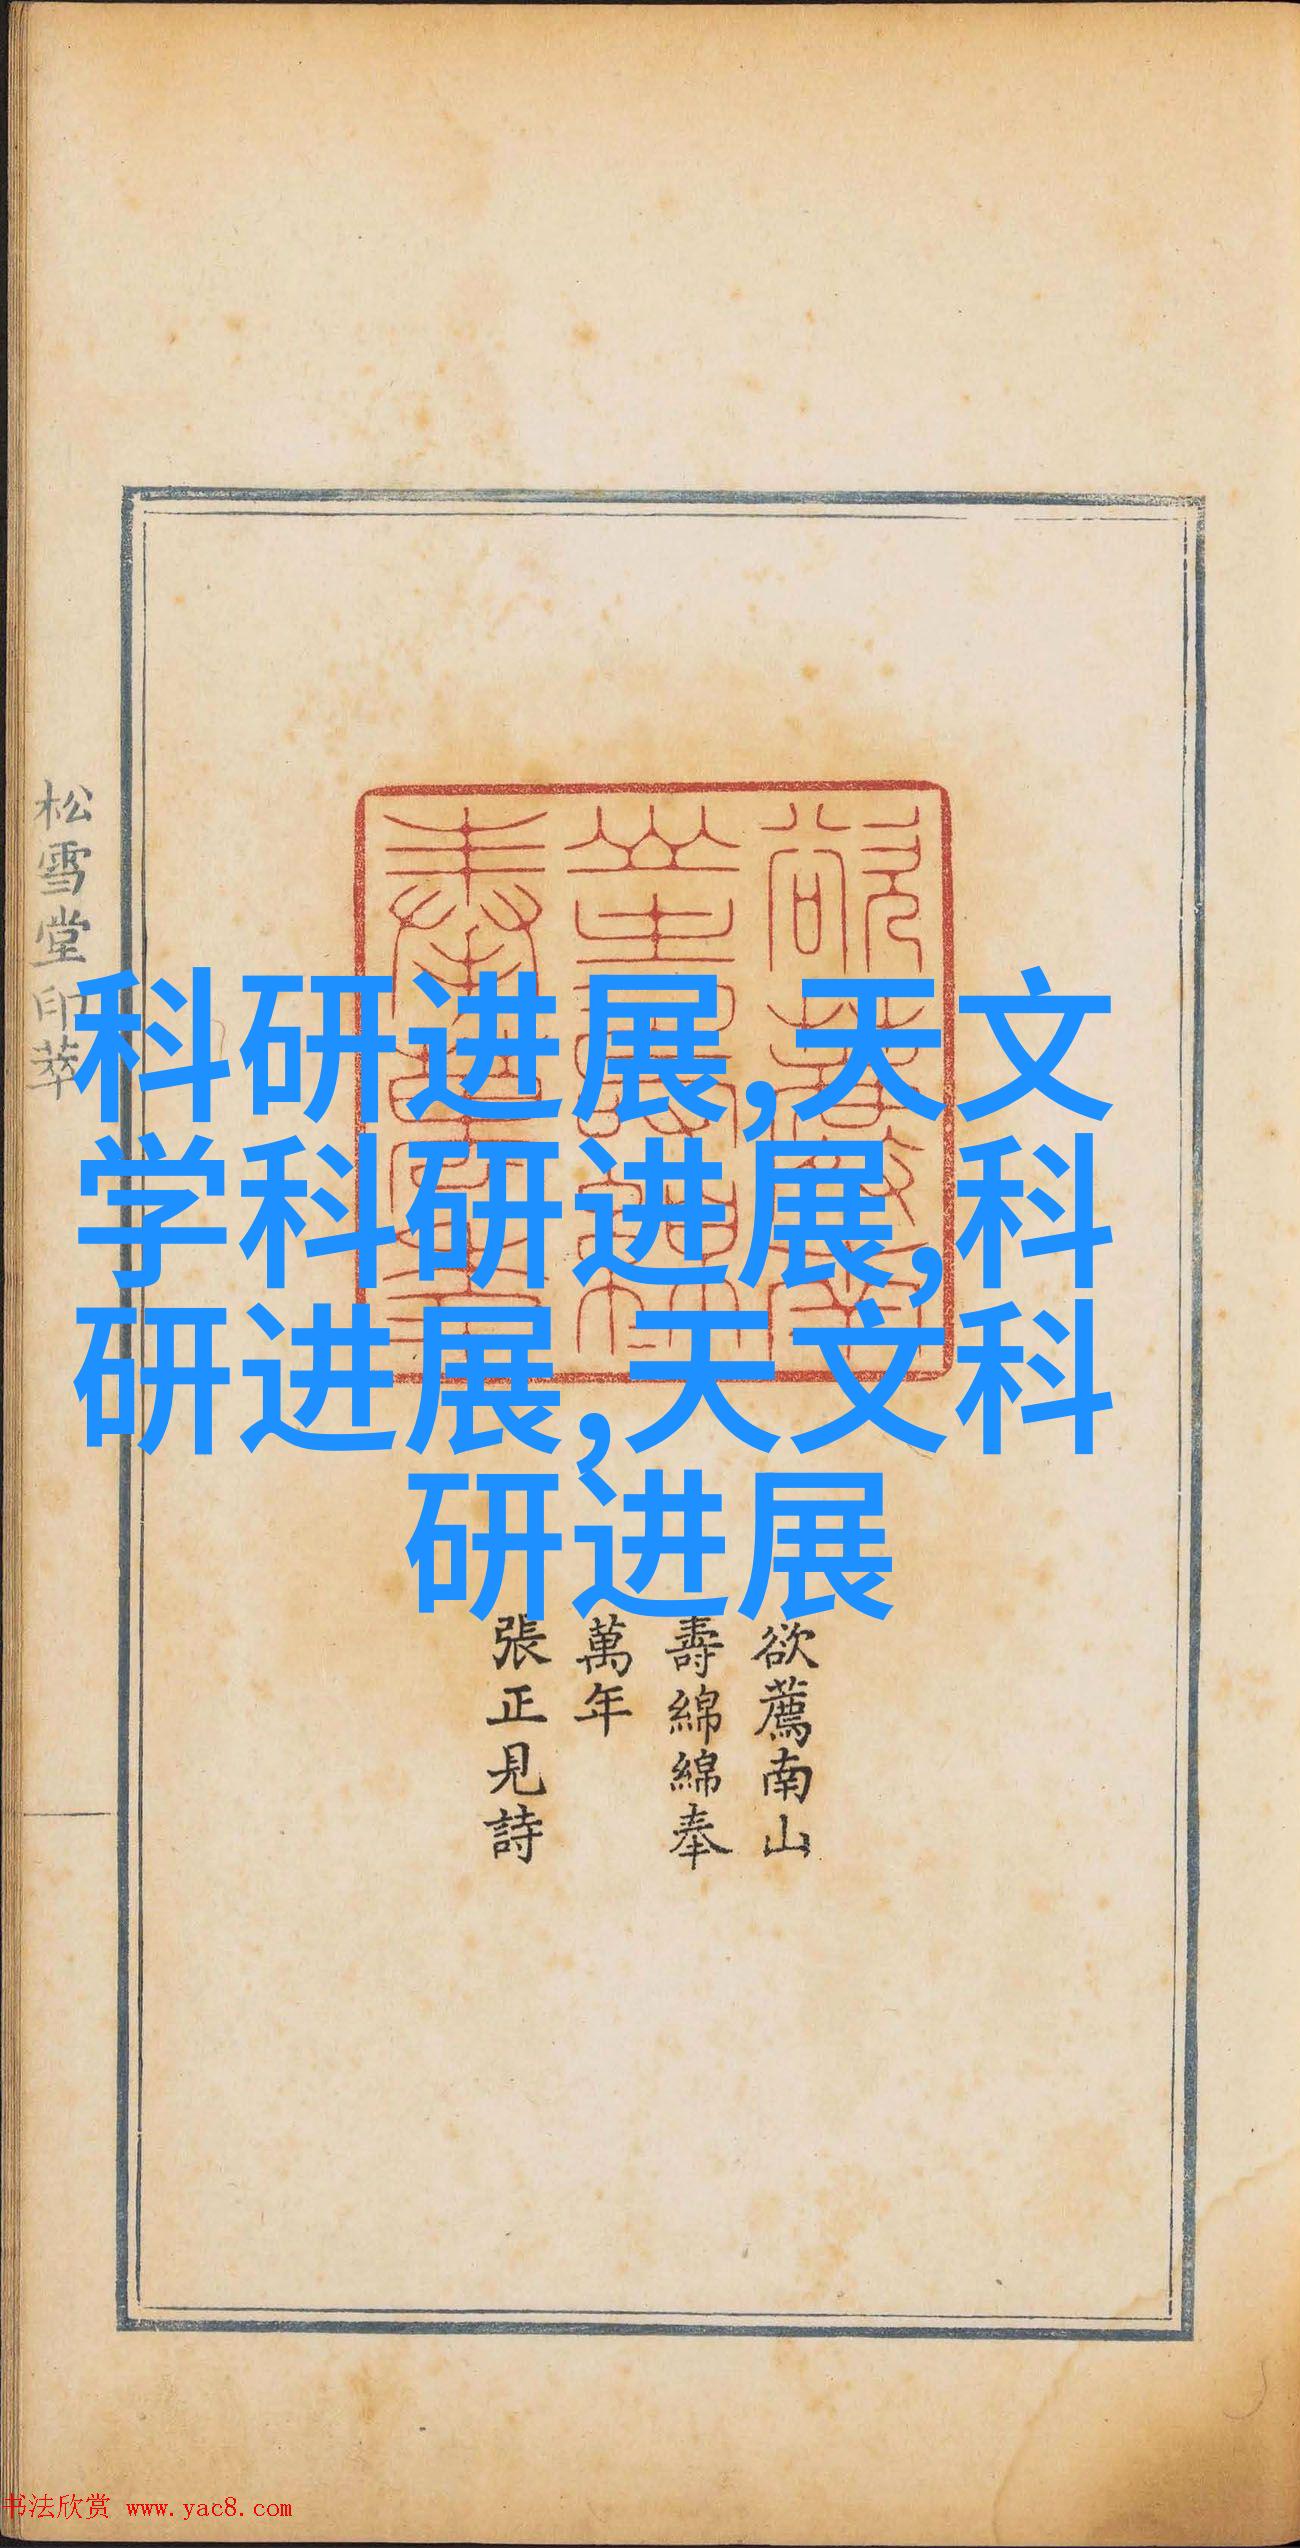 松雪堂印萃
科研进展,天文
学科研进展,科
研进展,天文科
研进展
欲薦南山
壽綿綿奉
萬年
張正見詩
书法欣赏 www.yac8.com